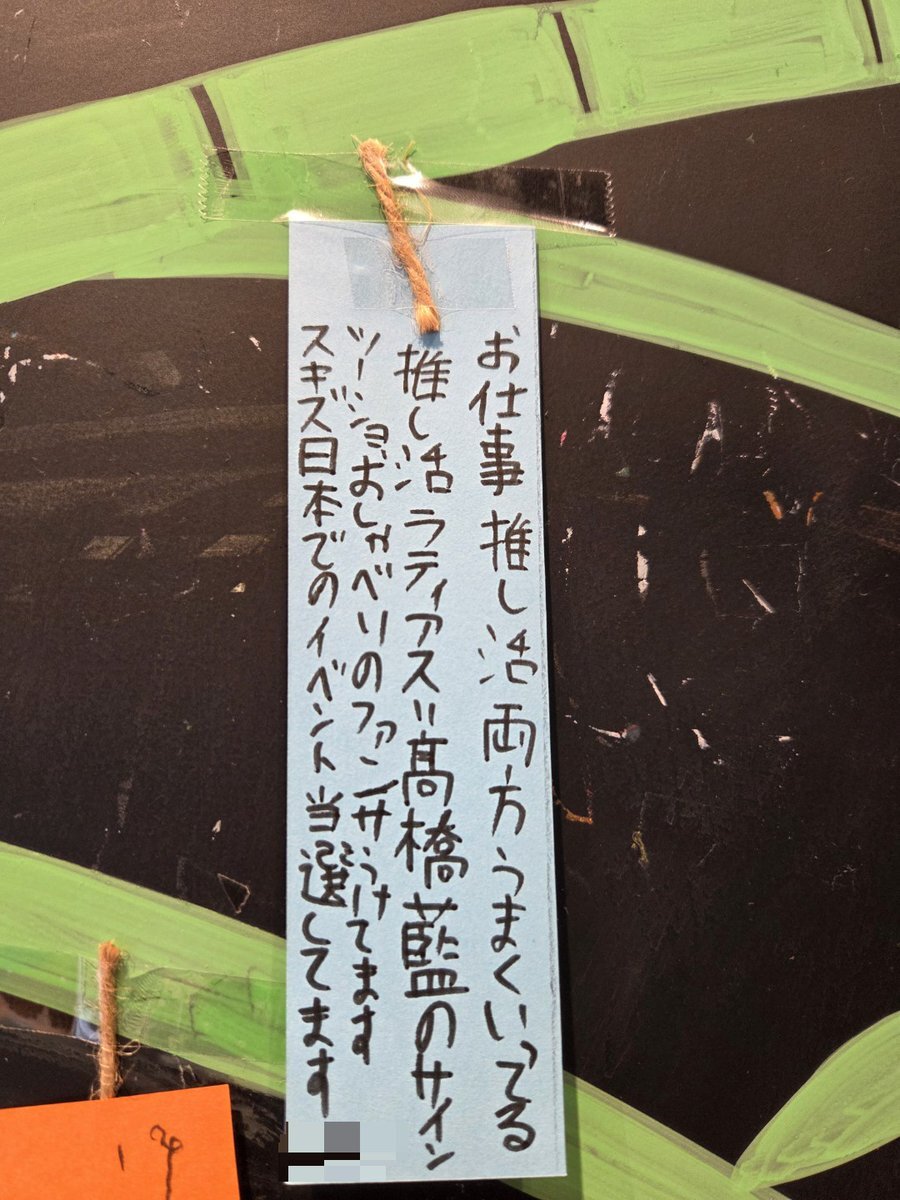 お仕事 推し活 両方うまくいってる
推し活 ラティアス=髙橋藍のサイン
ツーショおしゃべりのファンサうけてます
スキズ日本でのイベント当選してます